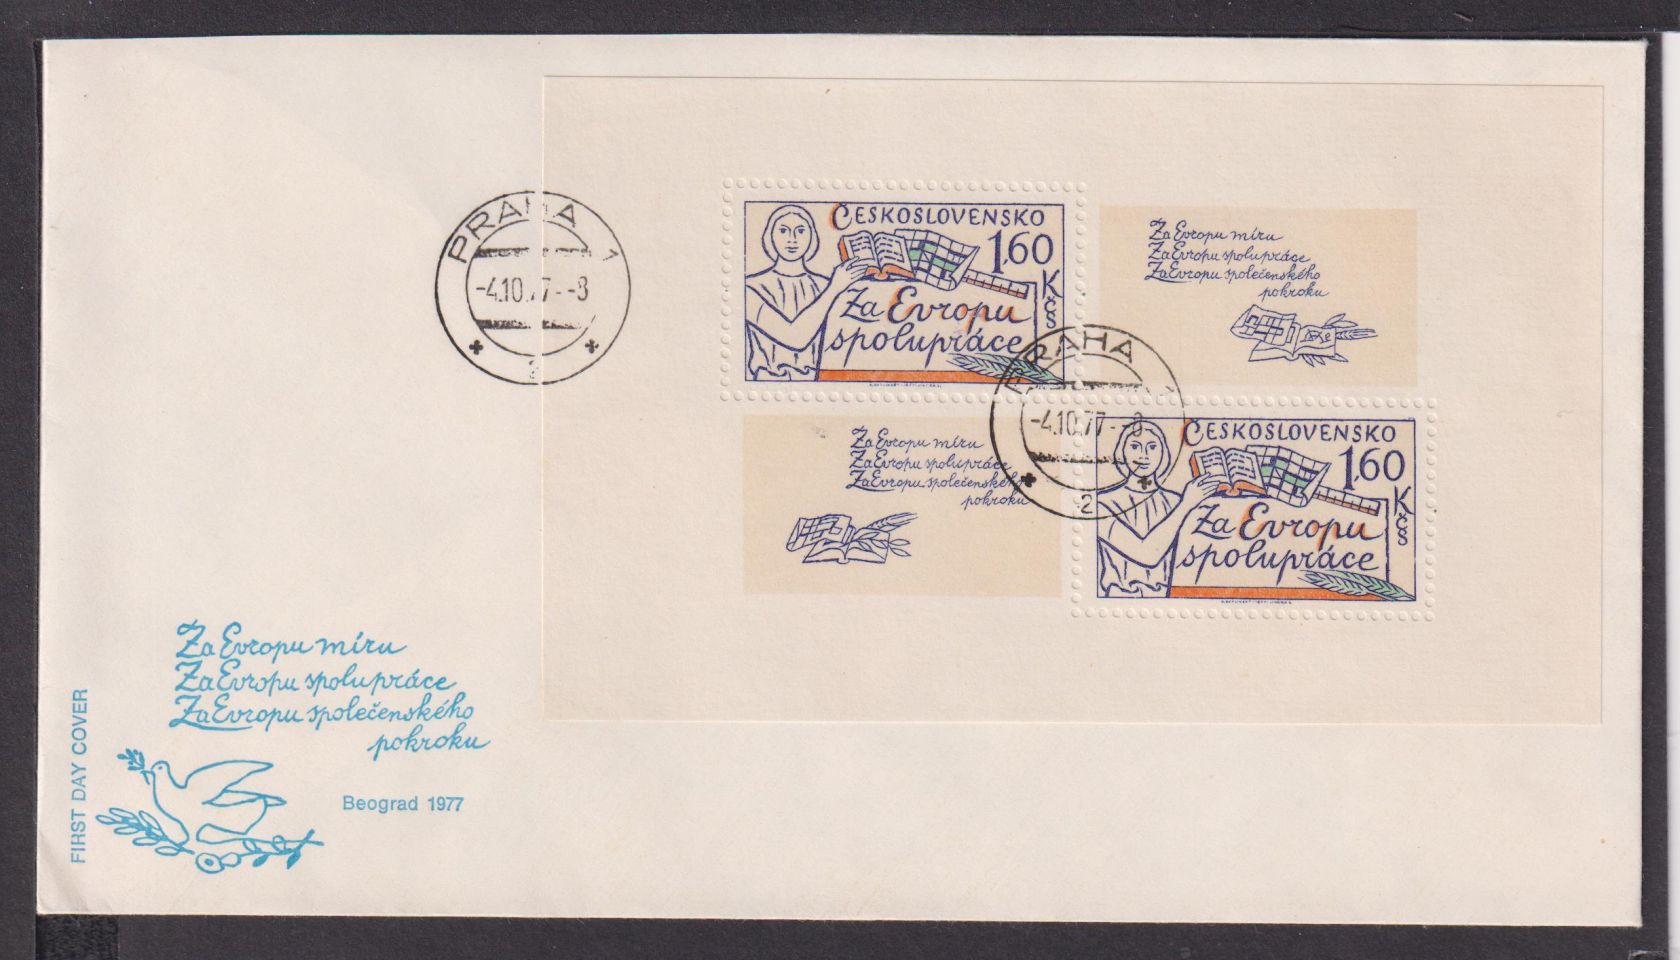 PRAHA 1
-4.10.77--8
2
ČESKOSLOVENSKO
1,60
Kčs
Za Evropu
spolupráce
Za Evropu míru
Za Evropu spolupráce
Za Evropu společenského
pokroku
PRAHA 1
-4.10.77--8
2
Za Evropu míru
Za Evropu spolupráce
Za Evropu společenského
pokroku
ČESKOSLOVENSKO
1,60
Kčs
Za Evropu
spolupráce
Za Evropu míru
Za Evropu spolupráce
Za Evropu společenského
pokroku
Beograd 1977
FIRST DAY COVER